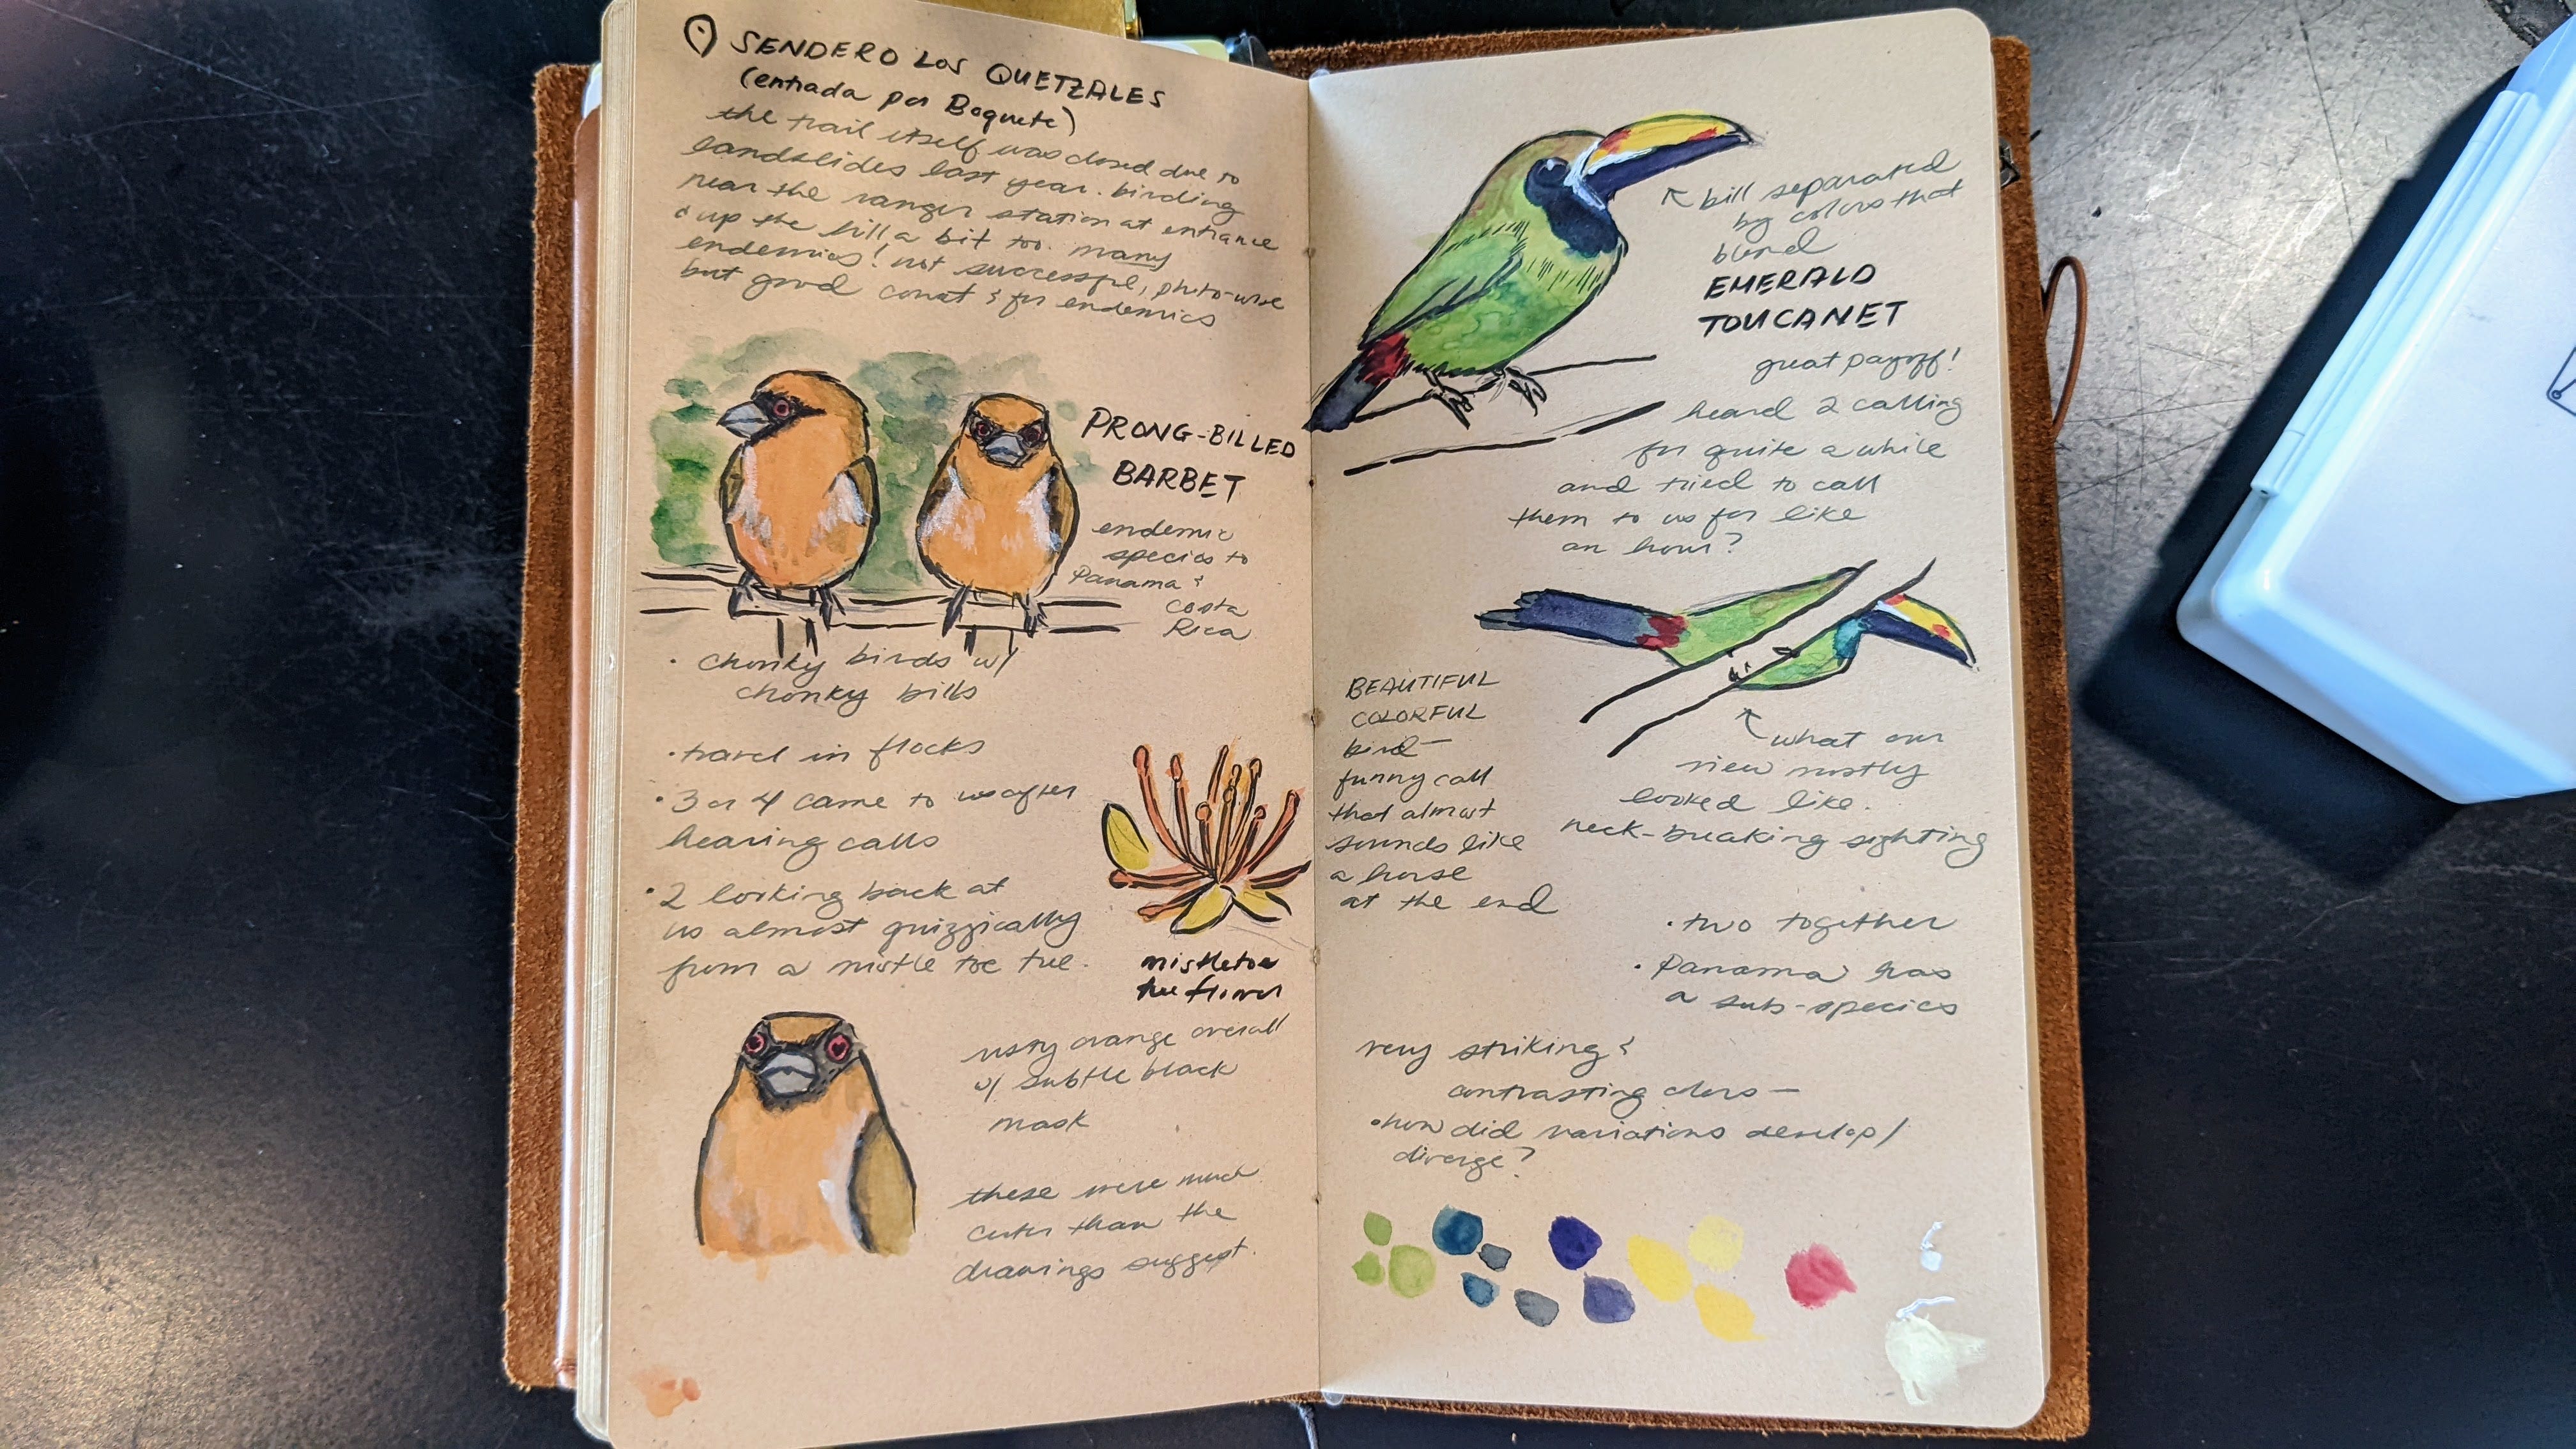 SENDERO LOS QUETZALES
(entrada por Boquete)
the trail itself was closed due to
landslides last year. birding
near the ranger station at entrance
& up the hill a bit too. many
endemics! not successful, photo-wise
but good count & for endemics
PRONG-BILLED
BARBET
endemic
species to
Panama &
Costa
Rica
· chonky birds w/
chonky bills
· travel in flocks
· 3 or 4 came to us after
hearing calls
· 2 looking back at
us almost quizzically
from a mistle toe tree.
mistletoe
tree flower
rusty orange overall
w/ subtle black
mask
these were much
cuter than the
drawings suggest.
bill separated
by colors that
blend
EMERALD
TOUCANET
great payoff!
heard 2 calling
for quite a while
and tried to call
them to us for like
an hour?
BEAUTIFUL
COLORFUL
bird—
funny call
that almost
sounds like
a horse
at the end
what our
view mostly
looked like.
neck-breaking sighting
· two together
· Panama has
a sub-species
very striking &
contrasting colors —
· how did variations develop/
diverge?